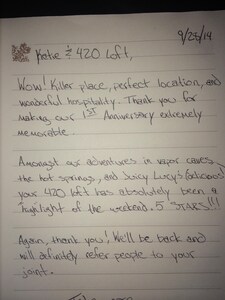 9/28/14
Katie & 420 Loft,
Wow! Killer place, perfect location, and
wonderful hospitality. Thank you for
making our 1ST Anniversary extremely
memorable.
Amongst our adventures in vapor caves,
the hot springs, and Juicy Lucy's (delicious)
your 420 loft has absolutely been a
highlight of the weekend. 5 STARS!!!
Again, thank you! We'll be back and
will definitely refer people to your
joint.